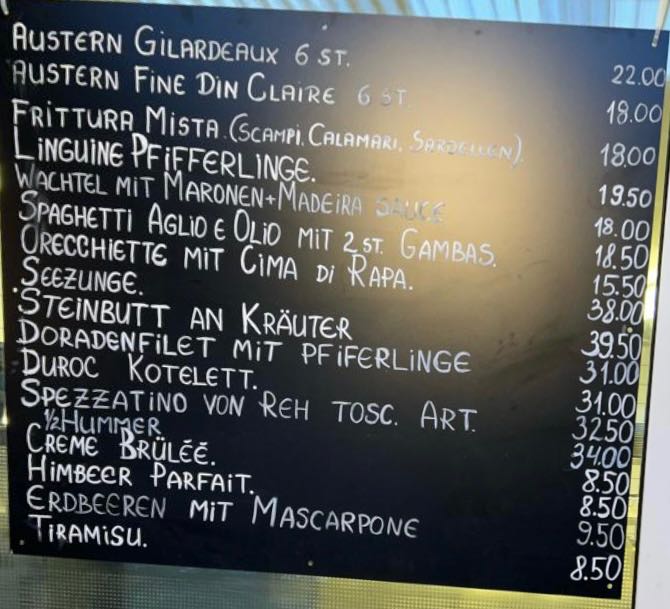 AUSTERN GILARDEAUX 6 ST. 22.00
AUSTERN FINE DIN CLAIRE 6 ST 18.00
FRITTURA MISTA.(SCAMPI, CALAMARI, SARDELLEN). 18.00
LINGUINE PFIFFERLINGE. 19.50
WACHTEL MIT MARONEN+MADEIRA SAUCE 18.00
SPAGHETTI AGLIO E OLIO MIT 2 ST. GAMBAS. 18.50
ORECCHIETTE MIT CIMA DI RAPA. 15.50
SEEZUNGE. 38.00
STEINBUTT AN KRÄUTER 39.50
DORADENFILET MIT PFIFERLINGE 31.00
DUROC KOTELETT. 31.00
SPEZZATINO VON REH TOSC. ART. 32.50
½ HUMMER 34.00
CREME BRÜLÉÉ. 8.50
HIMBEER PARFAIT. 8.50
ERDBEEREN MIT MASCARPONE 9.50
TIRAMISU. 8.50